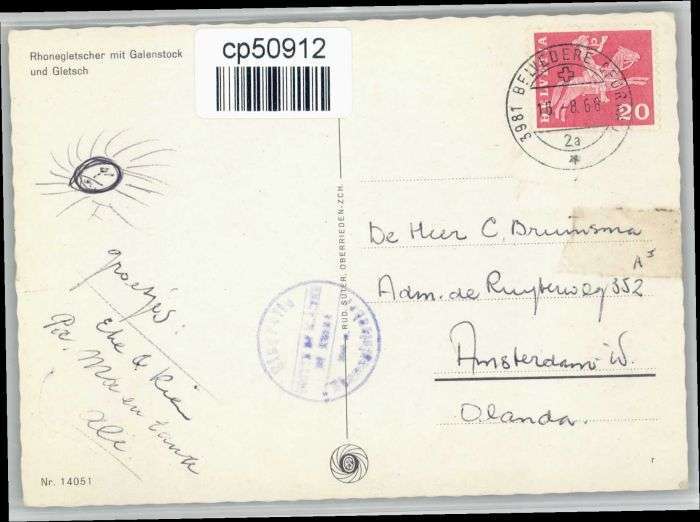 Rhonegletscher mit Galenstock
und Gletsch
cp50912
HELVETIA
20
3981 BELVEDERE (FURKA)
-8.68
2a
groetjes:
Elie & Rien
Pa, Ma en tante
Ali.
De Heer C. Bruinsma
Adm. de Ruyterweg 352
Amsterdam W.
Olanda.
RUD. SUTER, OBERRIEDEN-ZCH.
Nr. 14051